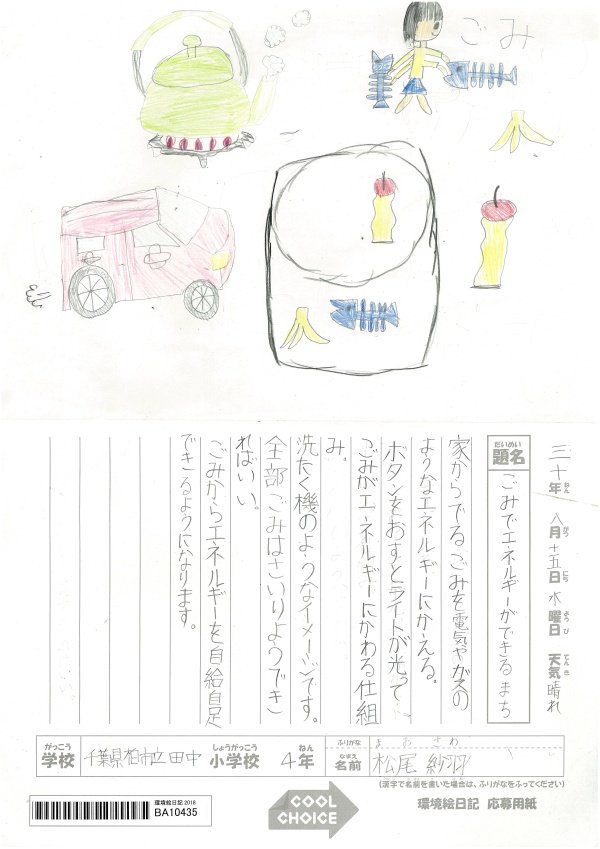 ごみ
三十年 八月十五日 水曜日 天気 晴れ
ねん がつ にち ようび てんき
だいめい
題名 ごみでエネルギーができるまち
家からでるごみを電気やガスの
ようなエネルギーにかえる。
ボタンをおすとライトが光って
ごみがエネルギーにかわる仕組
み。
洗たく機のようなイメージです。
全部ごみはさいりようでき
ればいい。
ごみからエネルギーを自給自足
できるようになります。
がっこう しょうがっこう ねん
学校 千葉県柏市立田中 小学校 4年
ふりがな まつおさわ
なまえ
名前 松尾 紗羽
(漢字で名前を書いた場合は、ふりがなをふってください)
環境絵日記 2018
BA10435
COOL CHOICE
環境絵日記 応募用紙